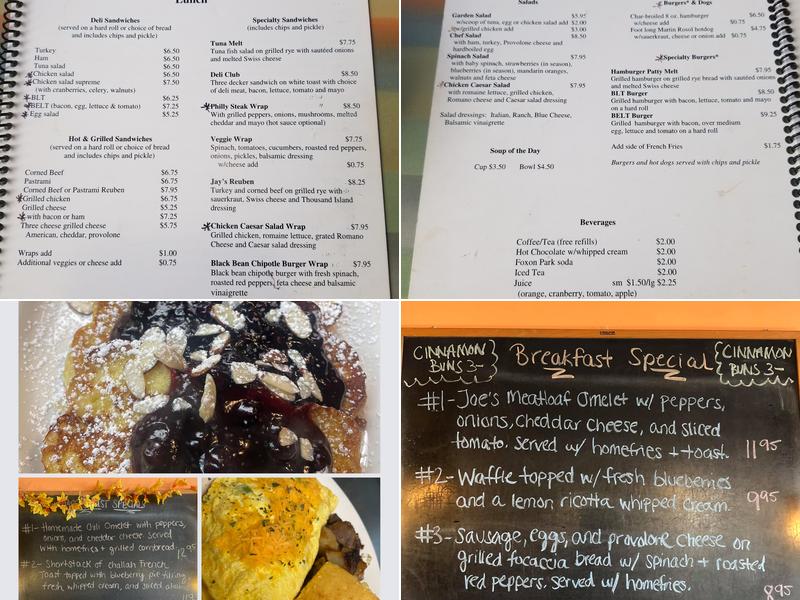 Lunch
Deli Sandwiches
(served on a hard roll or choice of bread
and includes chips and pickle)
Turkey $6.50
Ham $6.50
Tuna salad $6.50
Chicken salad $6.50
Chicken salad supreme $7.50
(with cranberries, celery, walnuts)
BLT $6.25
BELT (bacon, egg, lettuce & tomato) $7.25
Egg salad $5.25
Hot & Grilled Sandwiches
(served on a hard roll or choice of bread
and includes chips and pickle)
Corned Beef $6.75
Pastrami $6.75
Corned Beef or Pastrami Reuben $7.95
Grilled chicken $6.75
Grilled cheese $5.25
with bacon or ham $7.25
Three cheese grilled cheese $5.75
American, cheddar, provolone
Wraps add $1.00
Additional veggies or cheese add $0.75
Specialty Sandwiches
(includes chips and pickle)
Tuna Melt $7.75
Tuna fish salad on grilled rye with sautéed onions
and melted Swiss cheese
Deli Club $8.50
Three decker sandwich on white toast with choice
of deli meat, bacon, lettuce, tomato and mayo
Philly Steak Wrap $8.50
With grilled peppers, onions, mushrooms, melted
cheddar and mayo (hot sauce optional)
Veggie Wrap $7.75
Spinach, tomatoes, cucumbers, roasted red peppers,
onions, pickles, balsamic dressing
w/cheese add $0.75
Jay's Reuben $8.25
Turkey and corned beef on grilled rye with
sauerkraut, Swiss cheese and Thousand Island
dressing
Chicken Caesar Salad Wrap $7.95
Grilled chicken, romaine lettuce, grated Romano
Cheese and Caesar salad dressing
Black Bean Chipotle Burger Wrap $7.95
Black bean chipotle burger with fresh spinach,
roasted red peppers, feta cheese and balsamic
vinaigrette
Salads
Garden Salad $5.95
w/scoop of tuna, egg or chicken salad add $2.00
w/grilled chicken add $3.00
Chef Salad $8.50
with ham, turkey, Provolone cheese and
hardboiled egg
Spinach Salad $7.95
with baby spinach, strawberries (in season),
blueberries (in season), mandarin oranges,
walnuts and feta cheese
Chicken Caesar Salad $7.95
with romaine lettuce, grilled chicken,
Romano cheese and Caesar salad dressing
Salad dressings: Italian, Ranch, Blue Cheese,
Balsamic vinaigrette
Soup of the Day
Cup $3.50 Bowl $4.50
Burgers* & Dogs
Char-broiled 8 oz. hamburger $6.50
w/cheese add $0.75
Foot long Martin Rosol hotdog $4.75
w/sauerkraut, cheese or onion add $0.75
Specialty Burgers*
Hamburger Patty Melt $7.95
Grilled hamburger on grilled rye bread with sautéed onions
and melted Swiss cheese
BLT Burger $8.50
Grilled hamburger with bacon, lettuce, tomato and mayo
on a hard roll
BELT Burger $9.25
Grilled hamburger with bacon, over medium
egg, lettuce and tomato on a hard roll
Add side of French Fries $1.75
Burgers and hot dogs served with chips and pickle
Beverages
Coffee/Tea (free refills) $2.00
Hot Chocolate w/whipped cream $2.00
Foxon Park soda $2.00
Iced Tea $2.00
Juice sm $1.50/lg $2.25
(orange, cranberry, tomato, apple)
SPECIALS
#1- Homemade Chili Omelet with peppers,
onions, and cheddar cheese served
with homefries + grilled cornbread 12.95
#2- Shortstack of challah French
Toast topped with blueberry pie filling,
fresh whipped cream, and sliced
CINNAMON
BUNS 3-
Breakfast Special
CINNAMON
BUNS 3-
#1- Joe's Meatloaf Omelet w/ peppers,
onions, cheddar cheese, and sliced
tomato. Served w/ homefries + toast. 11 95
#2- Waffle topped w/ fresh blueberries
and a lemon ricotta whipped cream 9 95
#3- Sausage, eggs, and provolone cheese on
grilled focaccia bread w/ spinach + roasted
red peppers. Served w/ homefries. 8 95